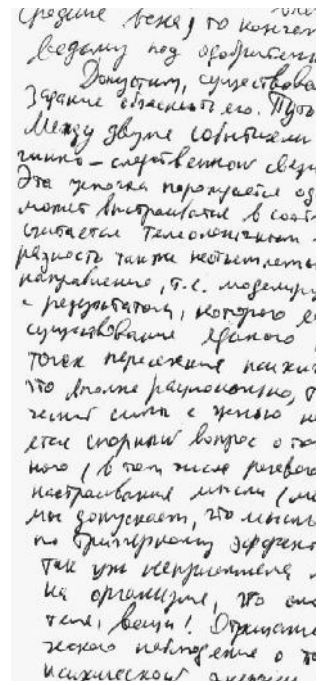 средние века, то конечн
ведьму под одобрительн
Допустим, существова
задание объяснить его. Путь
Между двумя событиями
чинно-следственной связи
Эта цепочка порождается од
может выстраиваться в соотв
считается телеологичным
разность также неотъемлемы
направление, т.е. моделиру
с результатом, которого е
существование единого
точек пересечения психич
что вполне рационально, т
ческой силы с женою
ется спорный вопрос о то
ного (в том числе речевого
настраивания мысли (
мы допускаем, что мысль
по триггерному эффект
так уж неприемлема
на организме, это
тела, вещи! Отрицание
ческого наблюдение о то
психической энергии